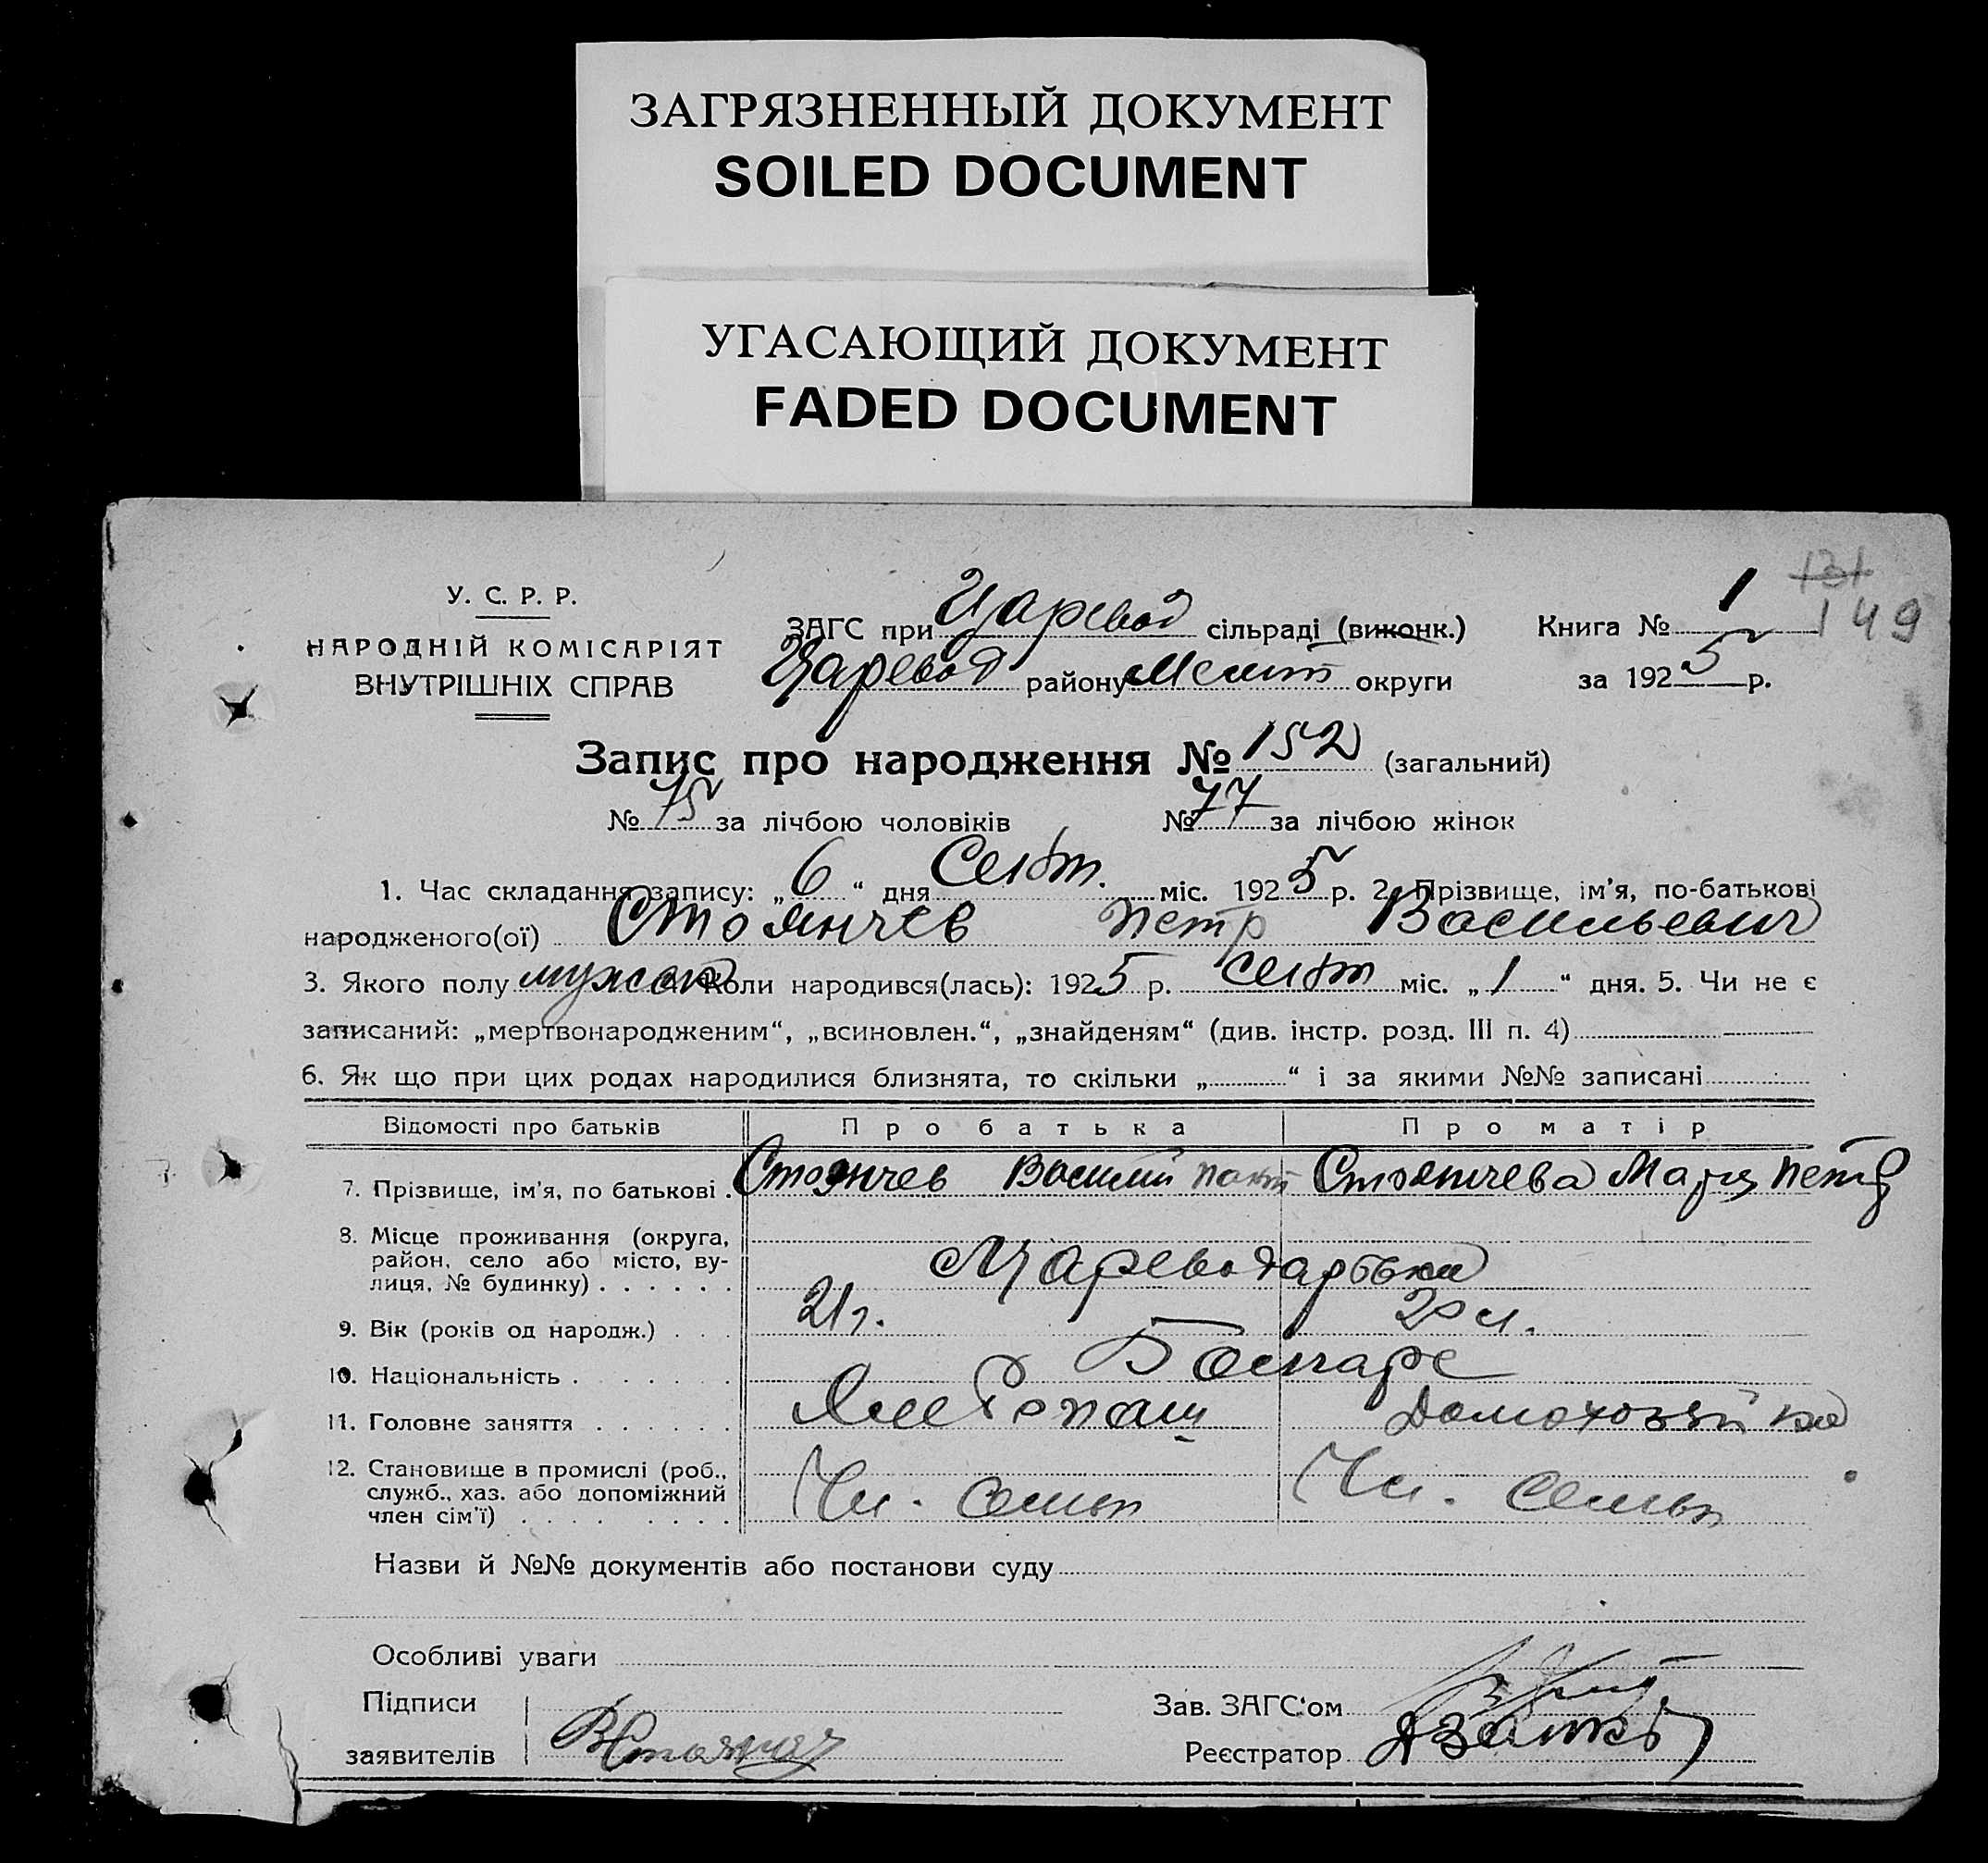 ЗАГРЯЗНЕННЫЙ ДОКУМЕНТ
SOILED DOCUMENT
УГАСАЮЩИЙ ДОКУМЕНТ
FADED DOCUMENT
131
149
У. С. Р. Р.
НАРОДНІЙ КОМІСАРІЯТ
ВНУТРІШНІХ СПРАВ
ЗАГС при Царевод сільраді (виконк.)
Царевод району Мелит округи
Книга № 1
за 1925 р.
Запис про народження № 152 (загальний)
№ 75 за лічбою чоловіків № 77 за лічбою жінок
1. Час складання запису: „6“ дня Сент. міс. 1925 р. 2. Прізвище, ім'я, по-батькові
народженого(ої) Стоянчев Петр Васильевич
3. Якого полу мужск Коли народився(лась): 1925 р. Сент міс. „1“ дня. 5. Чи не є
записаний: „мертвонародженим“, „всиновлен.“, „знайденям“ (див. інстр. розд. III п. 4)
6. Як що при цих родах народилися близнята, то скільки „ “ і за якими №№ записані
Відомості про батьків Про батька Про матір
7. Прізвище, ім'я, по батькові Стоянчев Василий Стоянчева Мария Петр
8. Місце проживання (округа,
район, село або місто, ву-
лиця, № будинку)
9. Вік (років од народж.) 21 г. 20 л.
10. Національність Болгаре
11. Головне заняття Хлебопаш Домохозяйка
12. Становище в промислі (роб.,
служб., хаз. або допоміжний
член сім'ї) Чл. семьи Чл. семьи
Назви й №№ документів або постанови суду
Особливі уваги
Підписи
заявителів
Зав. ЗАГС'ом
Реєстратор